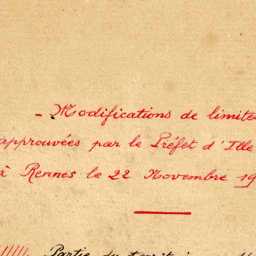 - Modifications de limites
approuvées par le Préfet d'Ille
à Rennes le 22 Novembre 19
Partie du territoire